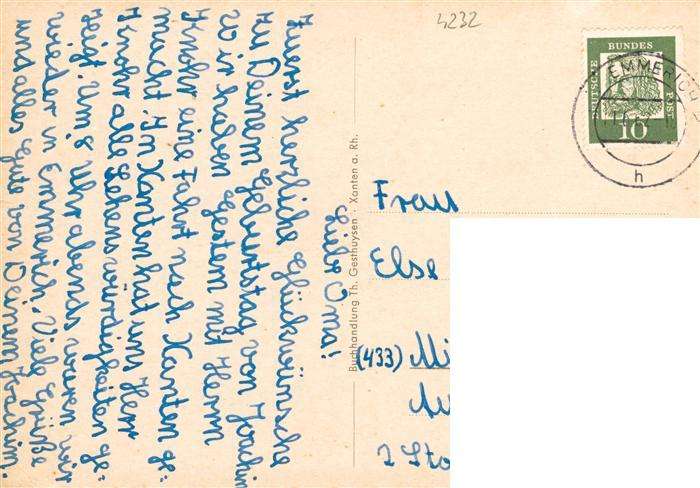 Liebe Oma!
Zuerst herzliche Glückwünsche
zu Deinem Geburtstag von Joachim
Wir haben Gestern mit Herrn
Knohr eine Fahrt nach Xanten ge=
macht. In Xanten hat uns Herr
Knohr alle Sehenswürdigkeiten ge=
zeigt. Um 8 Uhr abends waren wir
wieder in Emmerich. Viele Grüße
und alles Gute von Deinem Joachim.
Buchhandlung Th. Gesthuysen · Xanten a. Rh.
4232
DEUTSCHE
BUNDES
POST
10
EMMERICH
h
Frau
Else
(433) Mi
2 Sto